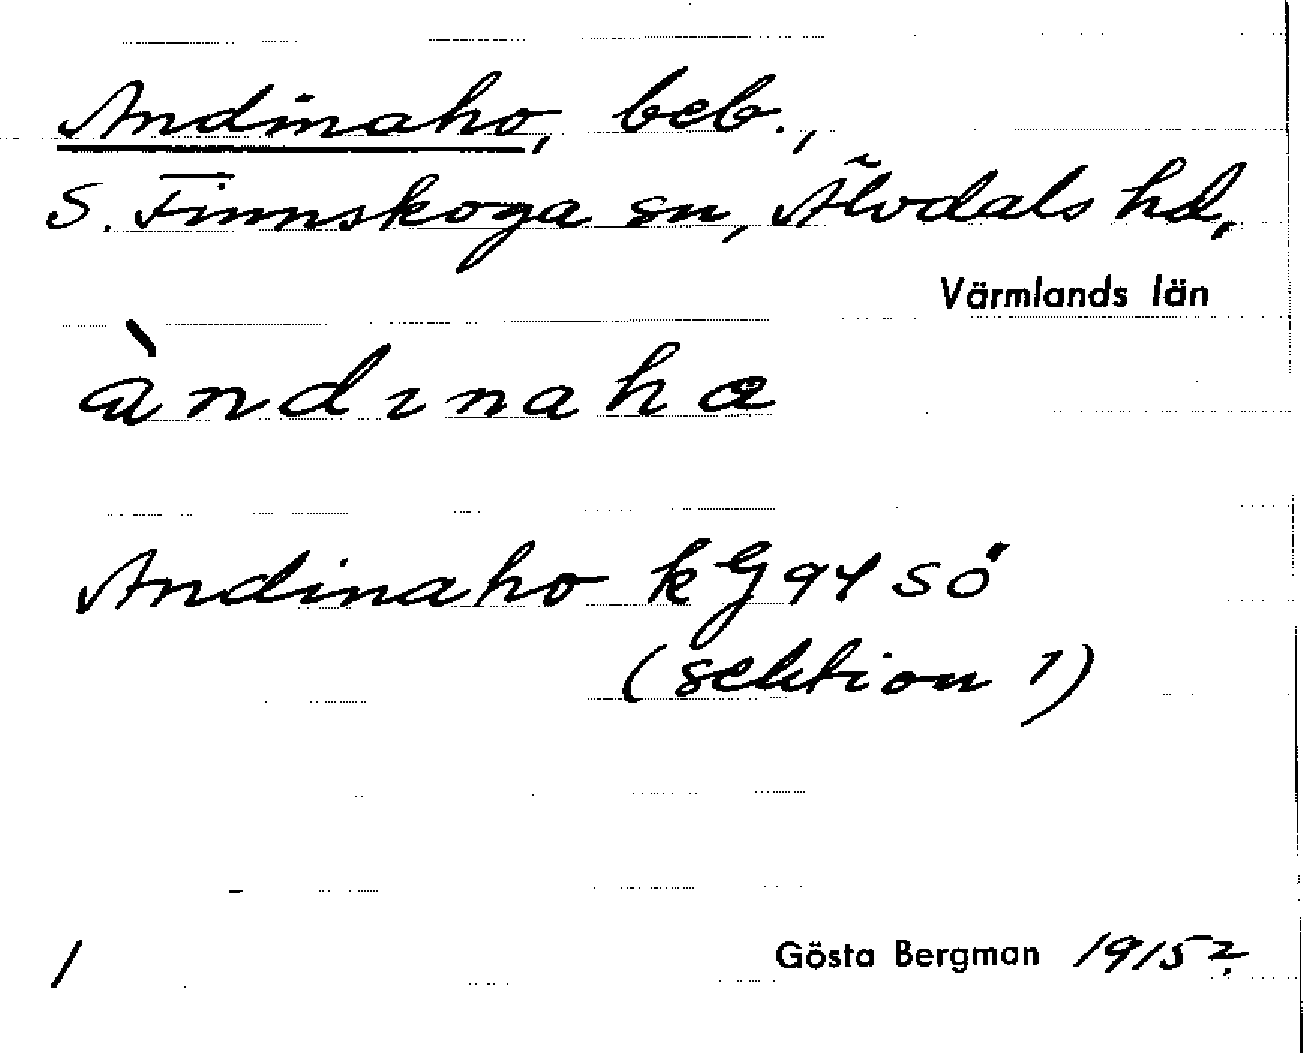 Andinaho, beb.,
S. Finnskoga sn, Älvdals hd,
Värmlands län
àndınaha
Andinaho kG 94 SÖ
(sektion 1)
1
Gösta Bergman 1915?